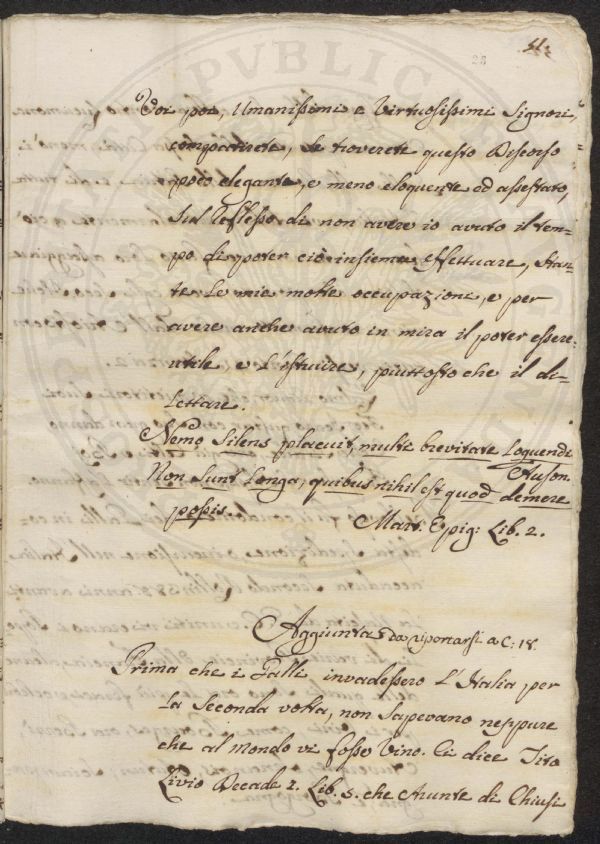 51.
28
Voi poi, Umanissimi e Virtuosissimi Signori,
compatirete, se troverete questo Discorso
poco elegante, e meno eloquente ed assestato,
sul riflesso di non avere io avuto il tem-
po di poter ciò insieme effettuare, stan-
te le mie molte occupazioni, e per
avere anche avuto in mira il poter essere
utile e l'istruire, piuttosto che il di-
lettare.
Nemo silens placuit, multi brevitate loquendi
Auson.
Non sunt longa, quibus nihil est quod demere
possis.
Mart. Epig: Lib. 2.
Aggiunta da riportarsi a C: 18.
Prima che i Galli invadessero l'Italia per
la seconda volta, non sapevano neppure
che al mondo vi fosse Vino. Ci dice Tito
Livio Decade 1. Lib. 5. che Arunte di Chiusi